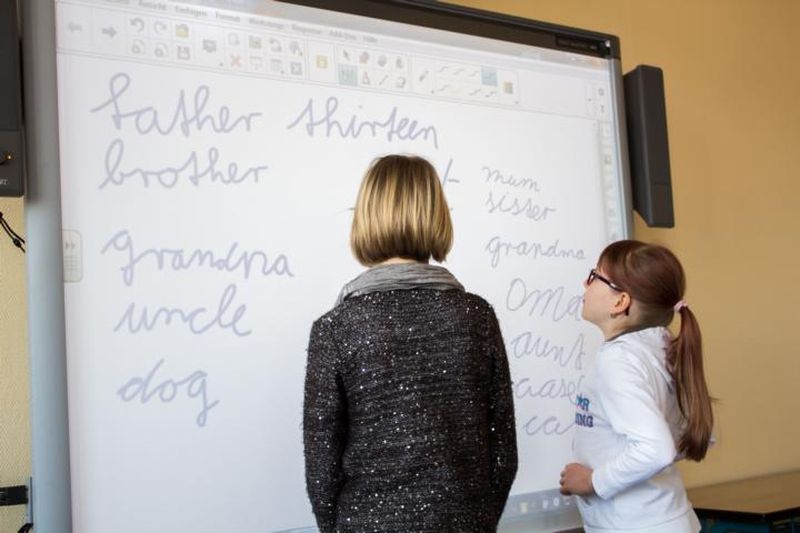 Ansicht Einfügen Format Werkzeuge Response Add-Ons Hilfe
father thirteen
brother
mum
sister
grandpa
grandma
uncle
oma
aunt
dog